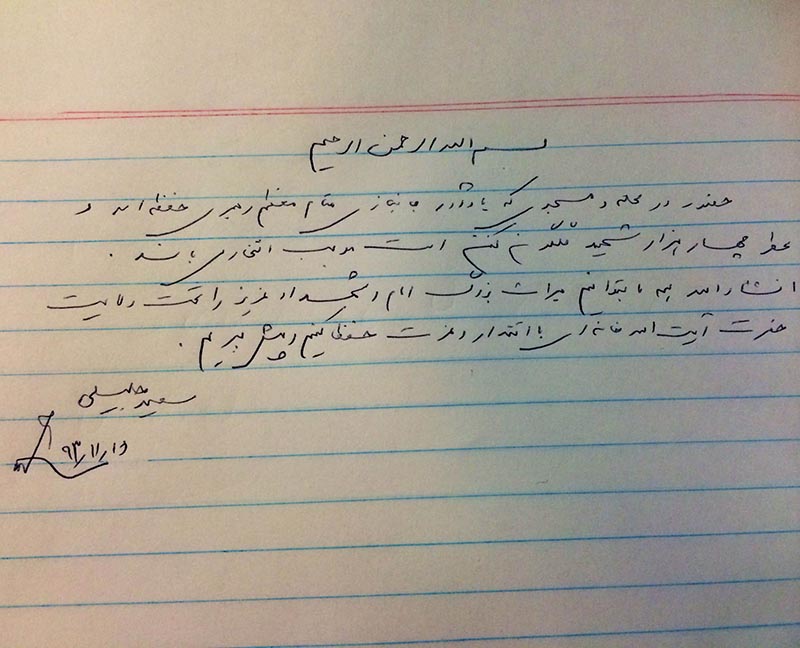 بسم الله الرحمن الرحیم
حضور در محله و مسجدی که یادآور جانبازی مقام معظم رهبری حفظه الله و
عطر چهار هزار شهید است موجب افتخاری باشد .
انشاءالله همه ما بتوانیم میراث بزرگ امام و شهداء عزیز را تحت ولایت
حضرت آیت الله خامنه ای با اقتدار و عزت حفظ کنیم و پیش ببریم .
سعید جلیلی
۹۳/۱۱/۱۵